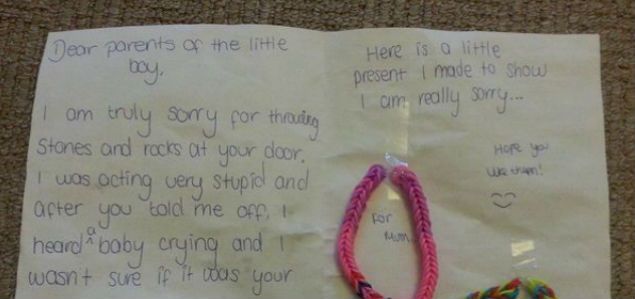 Dear parents of the little
boy,
I am truly sorry for throwing
stones and rocks at your door.
I was acting very stupid and
after you told me off, I
heard a baby crying and I
wasnt sure if it was your
Here is a little
present I made to show
I am really sorry...
Hope you
like them!
For
Mum